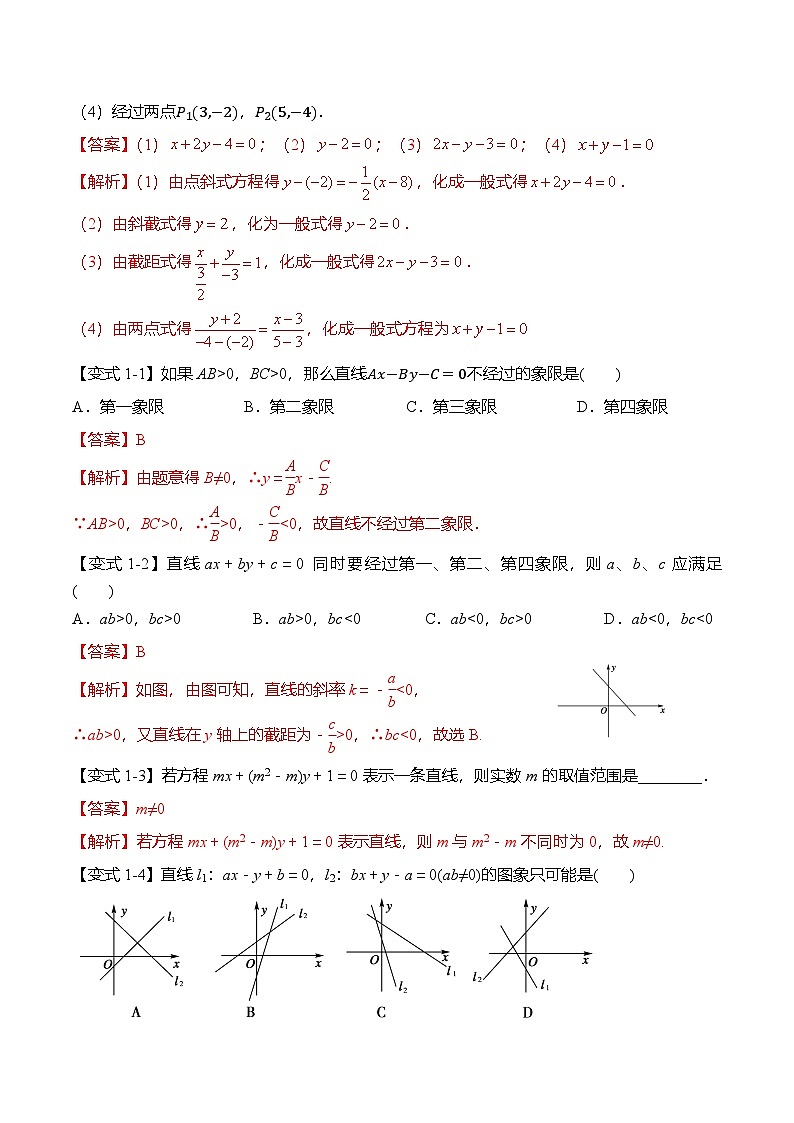 （4）经过两点P₁(3,−2)，P₂(5,−4)．
【答案】（1）x+2y−4=0；（2）y−2=0；（3）2x−y−3=0；（4）x+y−1=0
【解析】（1）由点斜式方程得y−(−2)=−1/2(x−8)，化成一般式得x+2y−4=0．
（2）由斜截式得y=2，化为一般式得y−2=0．
（3）由截距式得x/(3/2)+y/−3=1，化成一般式得2x−y−3=0．
（4）由两点式得(y+2)/(−4−(−2))=(x−3)/(5−3)，化成一般式方程为x+y−1=0
【变式1-1】如果AB>0，BC>0，那么直线Ax−By−C=0不经过的象限是(　　)
A．第一象限　B．第二象限　C．第三象限　D．第四象限
【答案】B
【解析】由题意得B≠0，∴y=A/Bx-C/B.
∵AB>0，BC>0，∴A/B>0，-C/B<0，故直线不经过第二象限．
【变式1-2】直线ax+by+c=0 同时要经过第一、第二、第四象限，则a、b、c应满足
(　　)
A．ab>0，bc>0　B．ab>0，bc<0　C．ab<0，bc>0　D．ab<0，bc<0
【答案】B
【解析】如图，由图可知，直线的斜率k=-a/b<0，
∴ab>0，又直线在y轴上的截距为-c/b>0，∴bc<0，故选B.
y
O
x
【变式1-3】若方程mx+(m²-m)y+1=0表示一条直线，则实数m的取值范围是________．
【答案】m≠0
【解析】若方程mx+(m²-m)y+1=0表示直线，则m与m²-m不同时为0，故m≠0.
【变式1-4】直线l₁：ax-y+b=0，l₂：bx+y-a=0(ab≠0)的图象只可能是(　　)
y l₁ O x l₂
y l₁ l₂ O x
y O x l₁ l₂
y O x l₂ l₁
A B C D